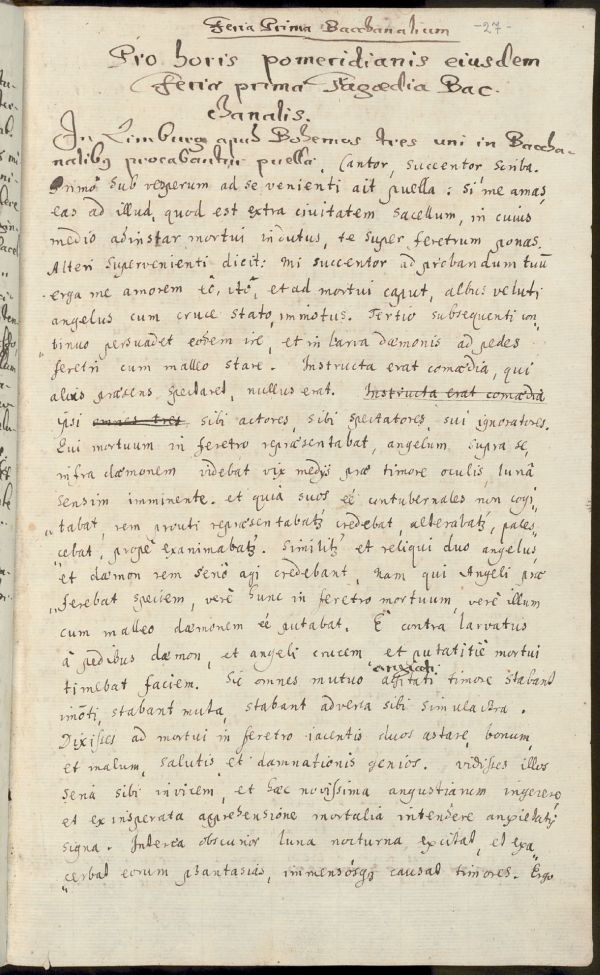 Feria Prima Bacchanalium -27-
Pro horis pomeridianis eiusdem
Feriæ primæ Tragœdia Bac-
chanalis.
In Limburg apud Bohemos tres uni in Baccha-
nalibꝫ procabantur puellæ, Cantor, Succentor, Scriba.
Primo Sub vesperum ad se venienti ait puella: Si me amas,
eas ad illud, quod est extra civitatem Sacellum, in cuius
medio ad instar mortui indutus, te super feretrum ponas.
Alteri Supervenienti dicit: mi succentor ad probandum tuū
erga me amorem eō, itō, et ad mortui caput, albus veluti
angelus cum cruce stato, immotus. Tertio subsequenti con
"tinuo persuadet eodem ire, et in larva dæmonis ad pedes
feretri cum malleo stare. Instructa erat comædia, qui
alius præsens spectaret, nullus erat. Instructa erat comædia
ipsi omnes tres sibi actores, sibi spectatores, sui ignoratores.
Qui mortuum in feretro repræsentabat, angelum supra se,
infra dæmonem videbat vix medijs præ timore oculis, lunâ
sensim imminente. et quia suos eē contubernales non cogi"
"tabat, rem prouti repræsentabatꝫ credebat, alterabatꝫ, palles"
"cebat, propè exanimabatꝫ. Similitꝫ et reliqui duo angelus,
et dæmon rem seriô agi credebant, nam qui Angeli præ
"ferebat speciem, verè hunc in feretro mortuum, verè illum
cum malleo dæmonem eē putabat. E contra larvatus
â pedibus dæmon, et angeli crucem et putatitiè mortui
timebat faciem. Sic omnes mutuo agitati timore stabant
imōti, stabant muta, stabant adversa sibi simulacra.
Dixisses ad mortui in feretro iacentis duos astare, bonum,
et malum, salutis et damnationis genios. vidisses illos
seriâ sibi invicem, et hæc novissima angustiarum ingerere,
et ex insperata apprehensione mortalia intendere anxietatꝫ
signa. Interea obscurior luna nocturna excitat, et exa"
"cerbat eorum phantasias, immensósqꝫ causat timores. Ergo